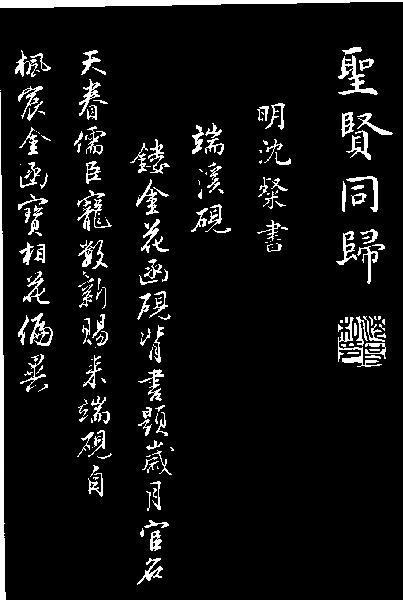 聖賢同歸
明沈粲書
端溪硯
鏤金花函硯背書題歲月官名
天眷儒臣寵數新賜来端硯自
楓宸金函寶相花偏異